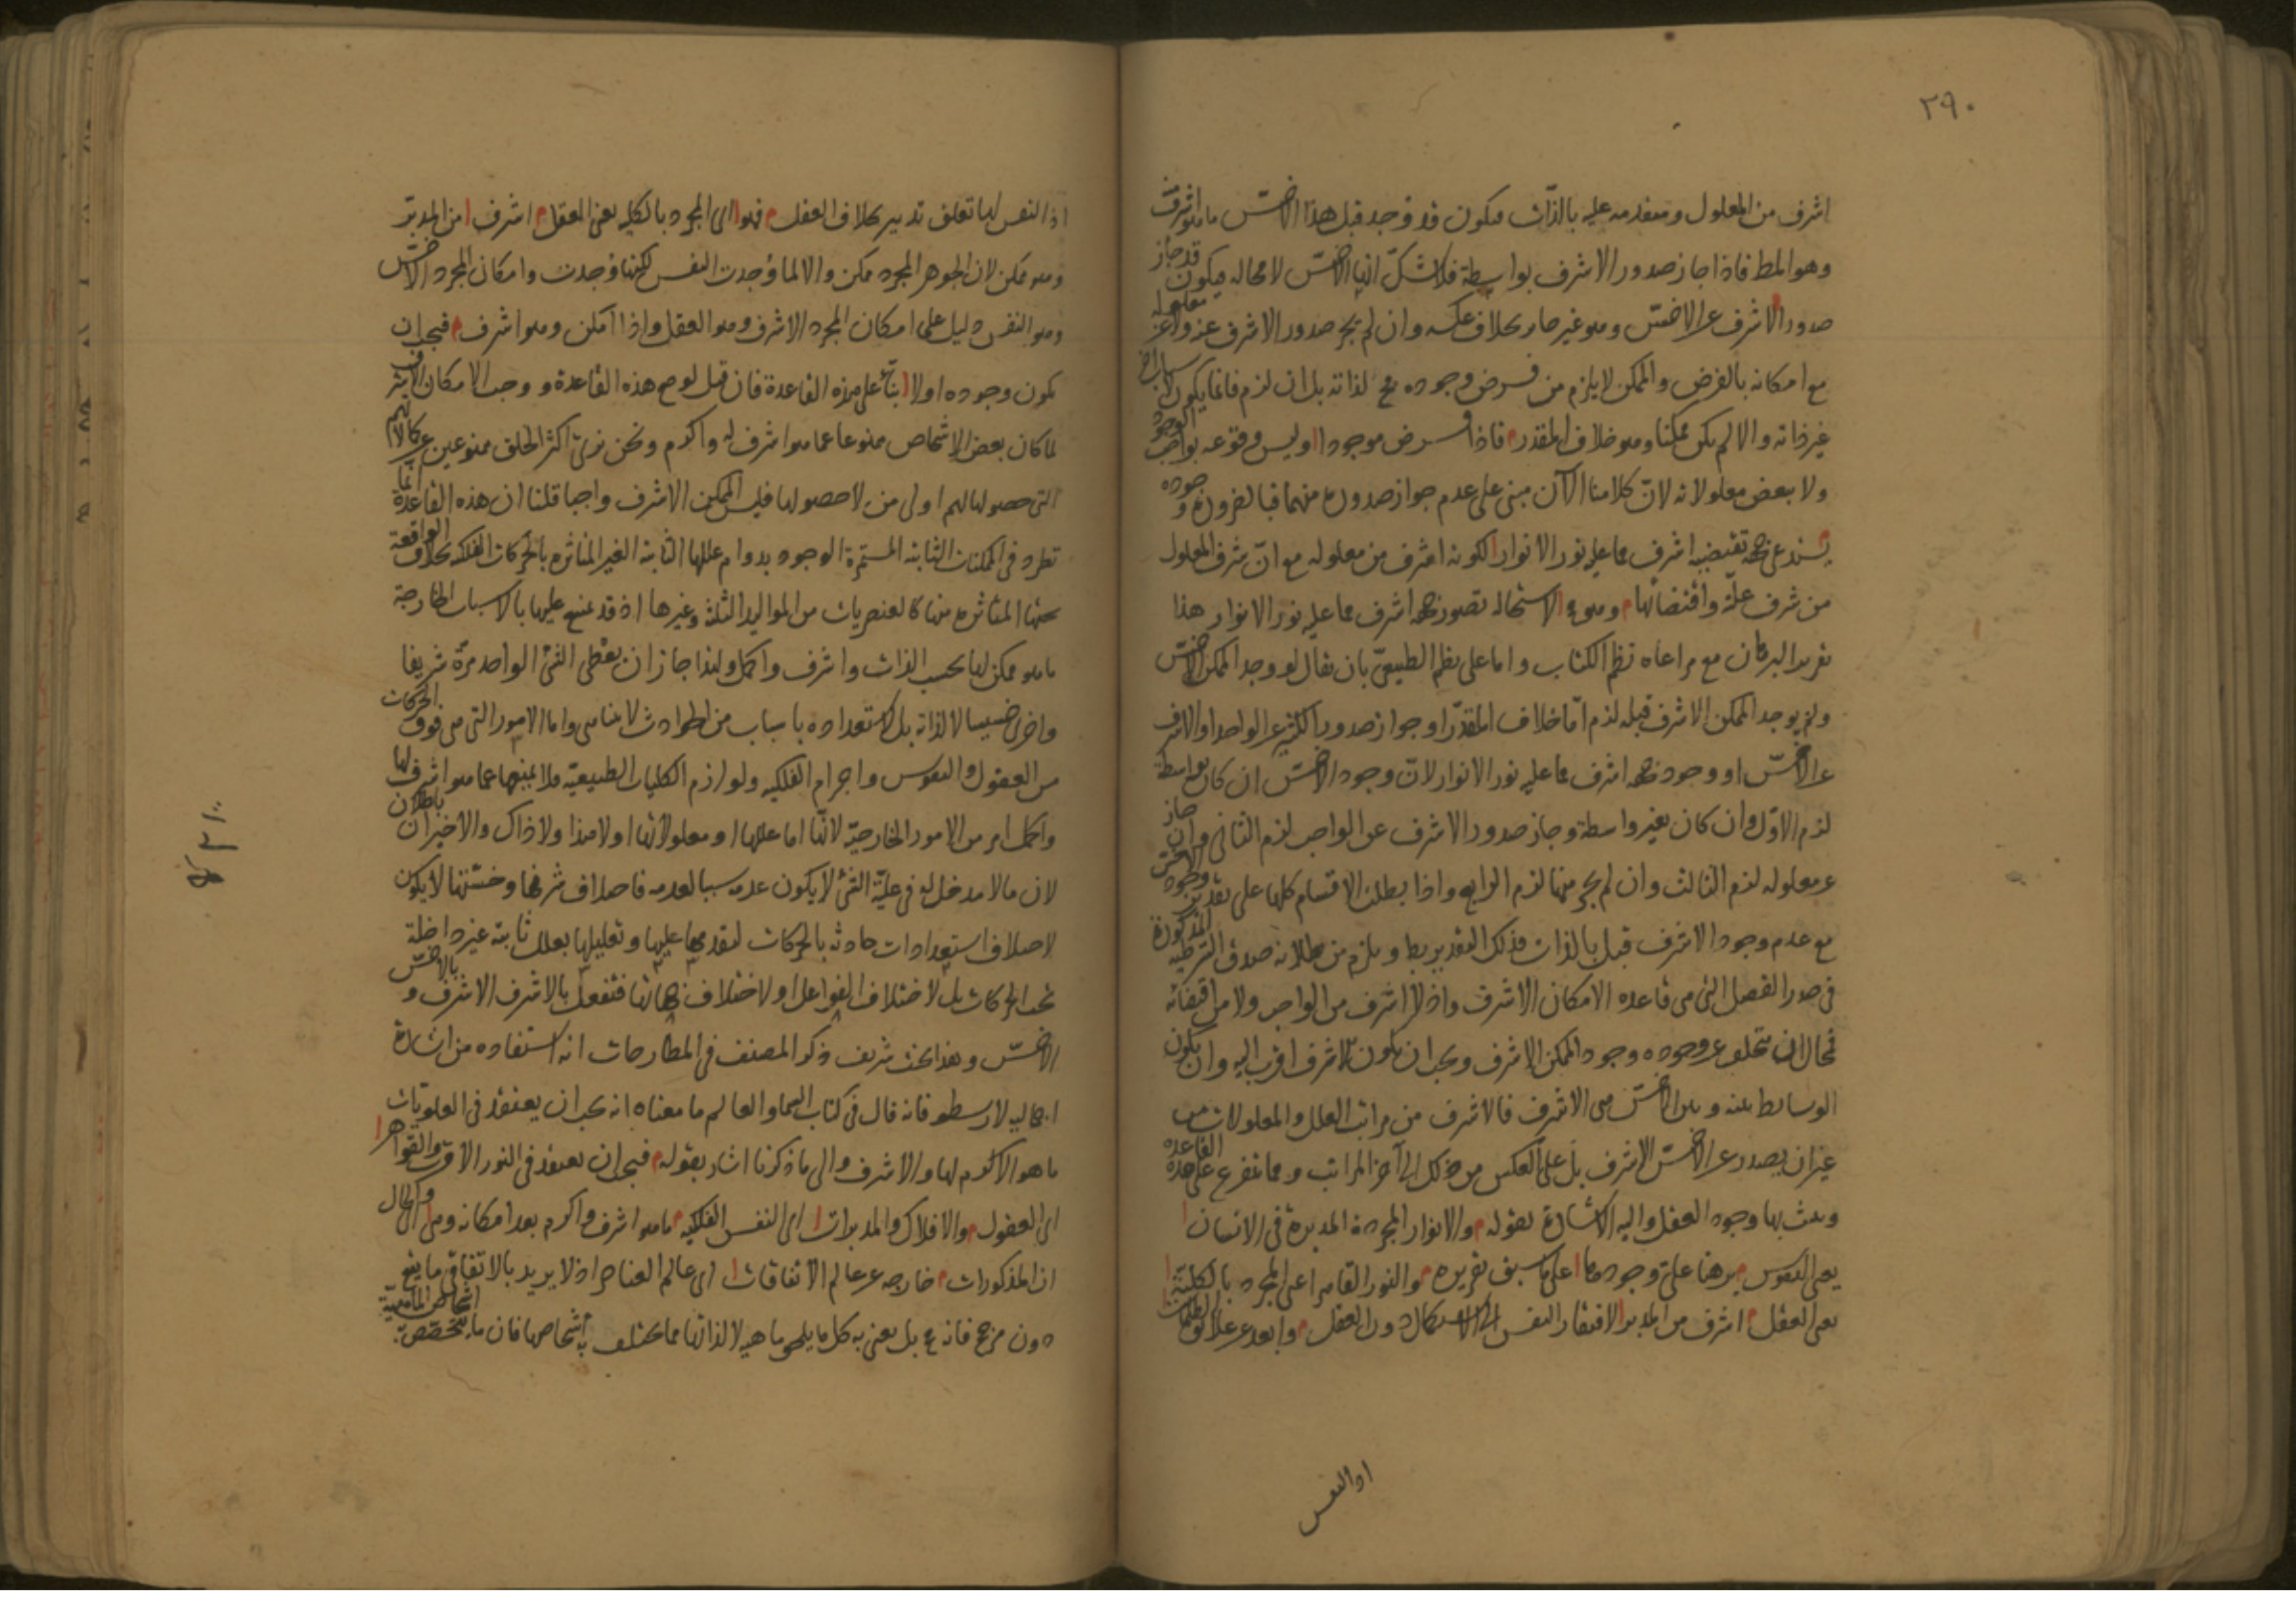 ٢٩٠
اشرف من المعلول ومتقدمه عليه بالذات فيكون قد وجد قبل هذا الاخس ما هو اشرف منه
وهو المط فاذا جاز صدور الاشرف بواسطة فلا شك انها الاخس لا محاله فيكون قد جاز
صدور الاشرف عن الاخس وهو غير جايز بخلاف عكسه وان لم يجز صدور الاشرف عنه ولا عن معلوله
مع امكانه بالفرض والممكن لا يلزم من فرض وجوده مح لذاته بل ان لزم فانما يكون لاسباب اخ
غير ذاته والا لم يكن ممكنا وهو خلاف المقدر فاذا فرض موجودا وليس وقوعه بواجب الوجود
ولا ببعض معلولاته لان كلامنا الآن مبنى على عدم جواز صدوره منهما فبالضرورة وجوده
يستدعى جهة تقتضيه اشرف مما عليه نور الانوار لكونه اشرف من معلوله مع ان شرف المعلول
من شرف علته واقتضائها وهو مح لاستحاله تصور جهه اشرف مما عليه نور الانوار هذا
تقرير البرهان مع مراعاه نظم الكتاب واما على نظم الطبيعى بان يقال لو وجد الممكن الاخس
ولم يوجد الممكن الاشرف قبله لزم اما خلاف المقدر او جواز صدور الكثير عن الواحد او الاشرف
عن الاخس او وجود جهه اشرف مما عليه نور الانوار لان وجود الاخس ان كان بواسطة
لزم الاول وان كان بغير واسطة وجاز صدور الاشرف عن الواجب لزم الثانى وان جاز
عن معلوله لزم الثالث وان لم يجز منهما لزم الرابع واذا بطلت الاقسام كلها على تقدير وجود الاخس
مع عدم وجود الاشرف قبل بالذات فذلك التقدير بط ويلزم من بطلانه صدق الشرطيه المذكورة
فى صدر الفصل التى هى قاعده الامكان الاشرف واذ لا اشرف من الواجب ولا من اقتضائه
فمحال ان يتخلف عن وجوده وجود الممكن الاشرف ويجب ان يكون الاشرف اقرب اليه وان يكون
الوسايط بينه وبين الاخس هى الاشرف فالاشرف من مراتب العلل والمعلولات من
غير ان يصدر عن الاخس الاشرف بل على العكس من ذلك الى آخر المراتب ومما يتفرع على هذه القاعده
ويثبت بها وجود العقل واليه الاشارة بقوله والانوار المجردة المدبرة فى الانسان
يعنى النفوس برهنا على وجودها على ما سبق تقريره والنور القاهر اعنى المجرد بالكلية
يعنى العقل اشرف من المدبر لافتقار النفس الى الاستكمال دون العقل وابعد عن علائق الظلمات
اذ النفس
اذ النفس لها تعلق تدبير بخلاف العقل فهو اى المجرد بالكليه يعنى العقل اشرف من المدبر
وهو ممكن لان الجوهر المجرد ممكن والا لما وجدت النفس لكنها وجدت وامكان المجرد الاخس
وهو النفس دليل على امكان المجرد الاشرف وهو العقل واذا امكن وهو اشرف فيجب ان
يكون وجوده اولا بناء على هذه القاعدة فان قيل لو صح هذه القاعدة ووجب الامكان الاشرف
لما كان بعض الاشخاص ممنوعا عما هو اشرف له واكرم ونحن نرى اكثر الخلق ممنوعين عن كمالاتهم
التى حصولها لهم اولى من لا حصولها فليس الممكن الاشرف واجبا قلنا ان هذه القاعدة انما
تطرد فى الممكنات الثابته المستمرة الوجود بدوام عللها الثابته الغير المتاثره بالحركات الفلكيه بخلاف الواقعة
تحتها المتاثره منها كالعنصريات من المواليد الثلثة وغيرها اذ قد يمتنع عليها بالاسباب الخارجة
ما هو ممكن لها بحسب الذات واشرف واكمل ولهذا جاز ان يعطى الشئ الواحد مرة شريفا
واخرى خسيسا لا لذاته بل لاستعداده باسباب من الحوادث لا يتناهى واما الامور التى هى فوق الحركات
من العقول والنفوس واجرام الفلكيه ولوازم الكليات الطبيعيه فلا يمنعها عما هو اشرف لها
واكمل امر من الامور الخارجية لانها اما عللها او معلولاتها او لا هذا ولا ذاك والاخيران باطلان
لان ما لا مدخل له فى علية الشئ لا يكون عدمه سببا لعدمه فاختلاف شرفها وخستها لا يكون
لاختلاف استعدادات حادثه بالحركات لتقدمها عليها وتعليلها بعلل ثابتة غير داخلة
تحت الحركات بل لاختلاف الفواعل او لاختلاف جهاتها فتفعل بالاشرف الاشرف وبالاخس
الاخس وهذا بحث شريف ذكر المصنف فى المطارحات انه استفاده من اشارة
اجماليه لارسطو فانه قال فى كتاب السما والعالم ما معناه انه يجب ان يعتقد فى العلويات
ما هو الاكرم لها والاشرف والى ما ذكرنا اشار بقوله فيجب ان يعتقد فى النور الاقرب والقواهر
اى العقول والافلاك والمدبرات اى النفس الفلكيه ما هو اشرف واكرم بعد امكانه وهى اى الحال
ان المذكورات خارجه عن عالم الاتفاقات اى عالم العناصر اذ لا يريد بالاتفاقى ما يقع
دون مرجح فانه مح بل يعنى به كل ما يلحق ماهيه لا لذاتها مما يختلف به اشخاصها فان ما يتخصص به اشخاص الماهية